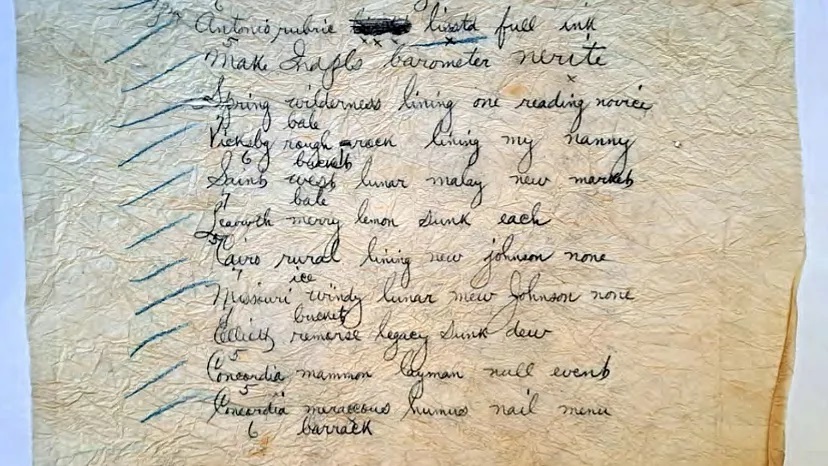 Antonio rubric lissta full ink
5
Make Indpls barometer nerite
Spring wilderness lining one reading novice
7 bale
Vicksbg rough rock lining my nanny
6 bucket
Saints west lunar malay new market
7 bale
Leavwth merry lemon sunk each
Cairo rural lining new johnson none
7 ice
Missouri windy lunar mew Johnson none
bucket
remorse legacy sunk dew
5
Concordia mammon layman null event
5
Concordia meraccous humus nail menu
6 barrack